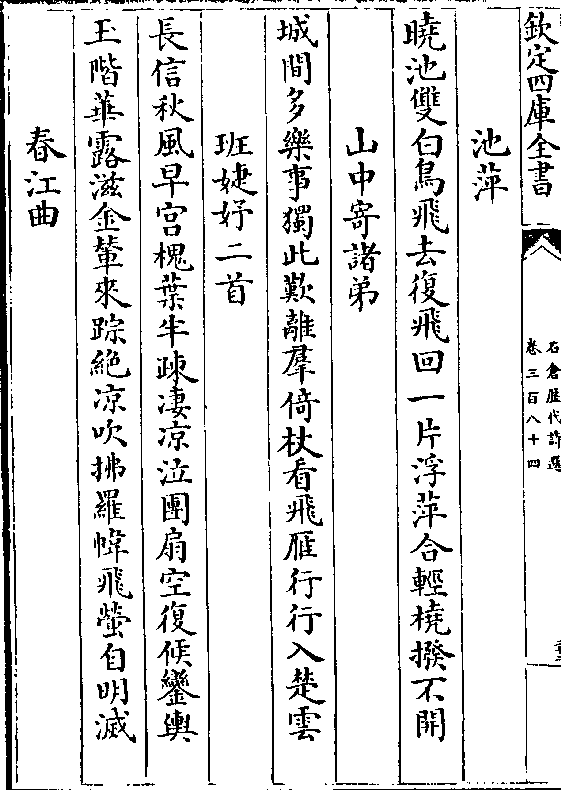 欽定四庫全書
石倉歷代詩選
卷三百八十四
池萍
曉池雙白鳥飛去復飛回一片浮萍合輕橈撥不開
山中寄諸弟
城間多樂事獨此歎離羣倚杖看飛雁行行入楚雲
班婕妤二首
長信秋風早宮槐葉半疎淒凉泣團扇空復候鑾輿
玉階華露滋金輦來踪絶凉吹拂羅幃飛螢自明滅
春江曲